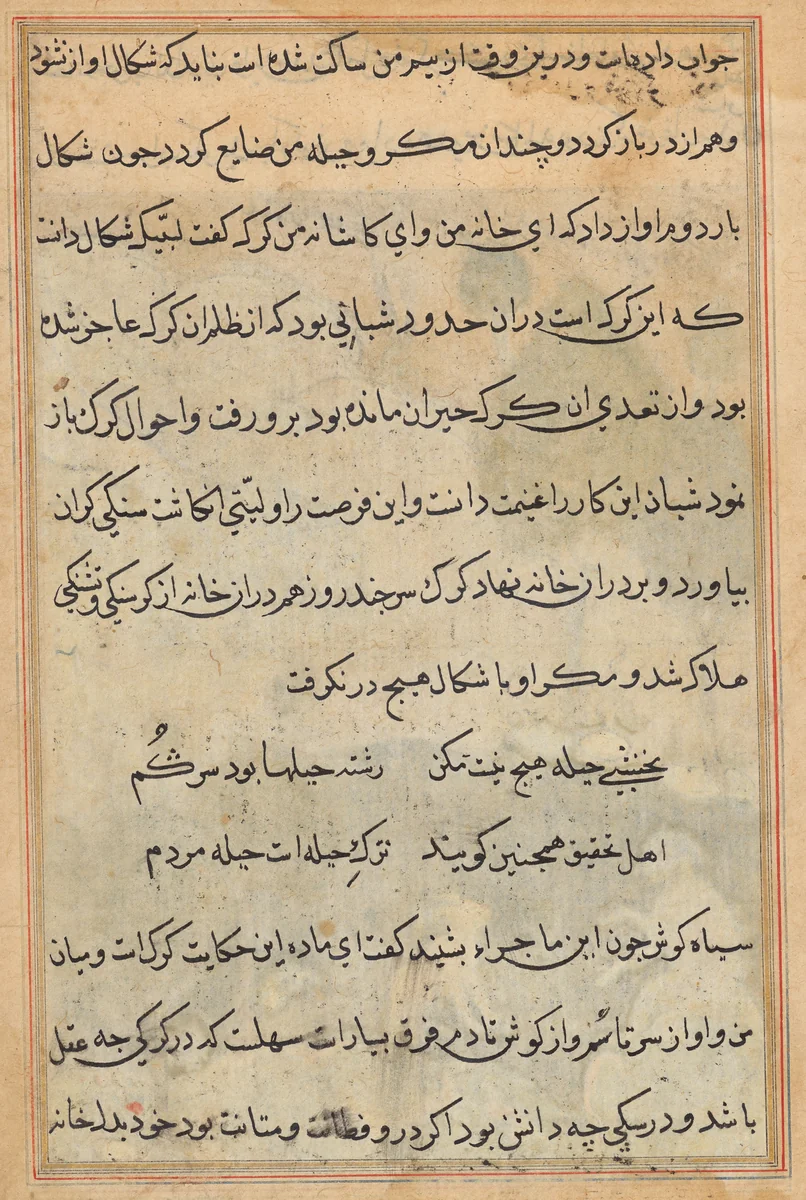 جواب داده است و درین وقت از بیم من ساکت شده است بناید که شکال اواز نشنود
و هم از در باز کردد و چندان مکر و حیله من ضایع کردد جون شکال
بار دوم اواز داد که ای خانه من وای کاشانه من کرک کفت لبّیک شکال دانت
که این کرک است دران حدود شبانی بود که از ظلم ان کرک عاجز شده
بود و از تعدی ان کرک حیران مانده بود برو رفت و احوال کرک باز
نمود شبان این کار را غنیمت دانت و این فرصت را ولیّتی انکاشت سنکی کران
بیاورد و بر در ان خانه نهاد کرک سر چند روز هم دران خانه از کرسنکی و تشنکی
هلاک شد و مکر او با شکال هیج در نکرفت
نخشبی حیله هیج نیت مکن رشته حیلها بود سر کُم
اهل تحقیق همجنین کویند ترکِ حیله است حیله مردم
سیاه کوش جون این ماجراء بشنید کفت ای ماده این حکایت کرک است و میان
من و او از سر تا سُم و از کوش تا دم فرق بسیار است سهلست که در کرکی جه عقل
باشد و در سکی چه دانش بود اکر درو فطانت و متانت بود خود بدر خانه